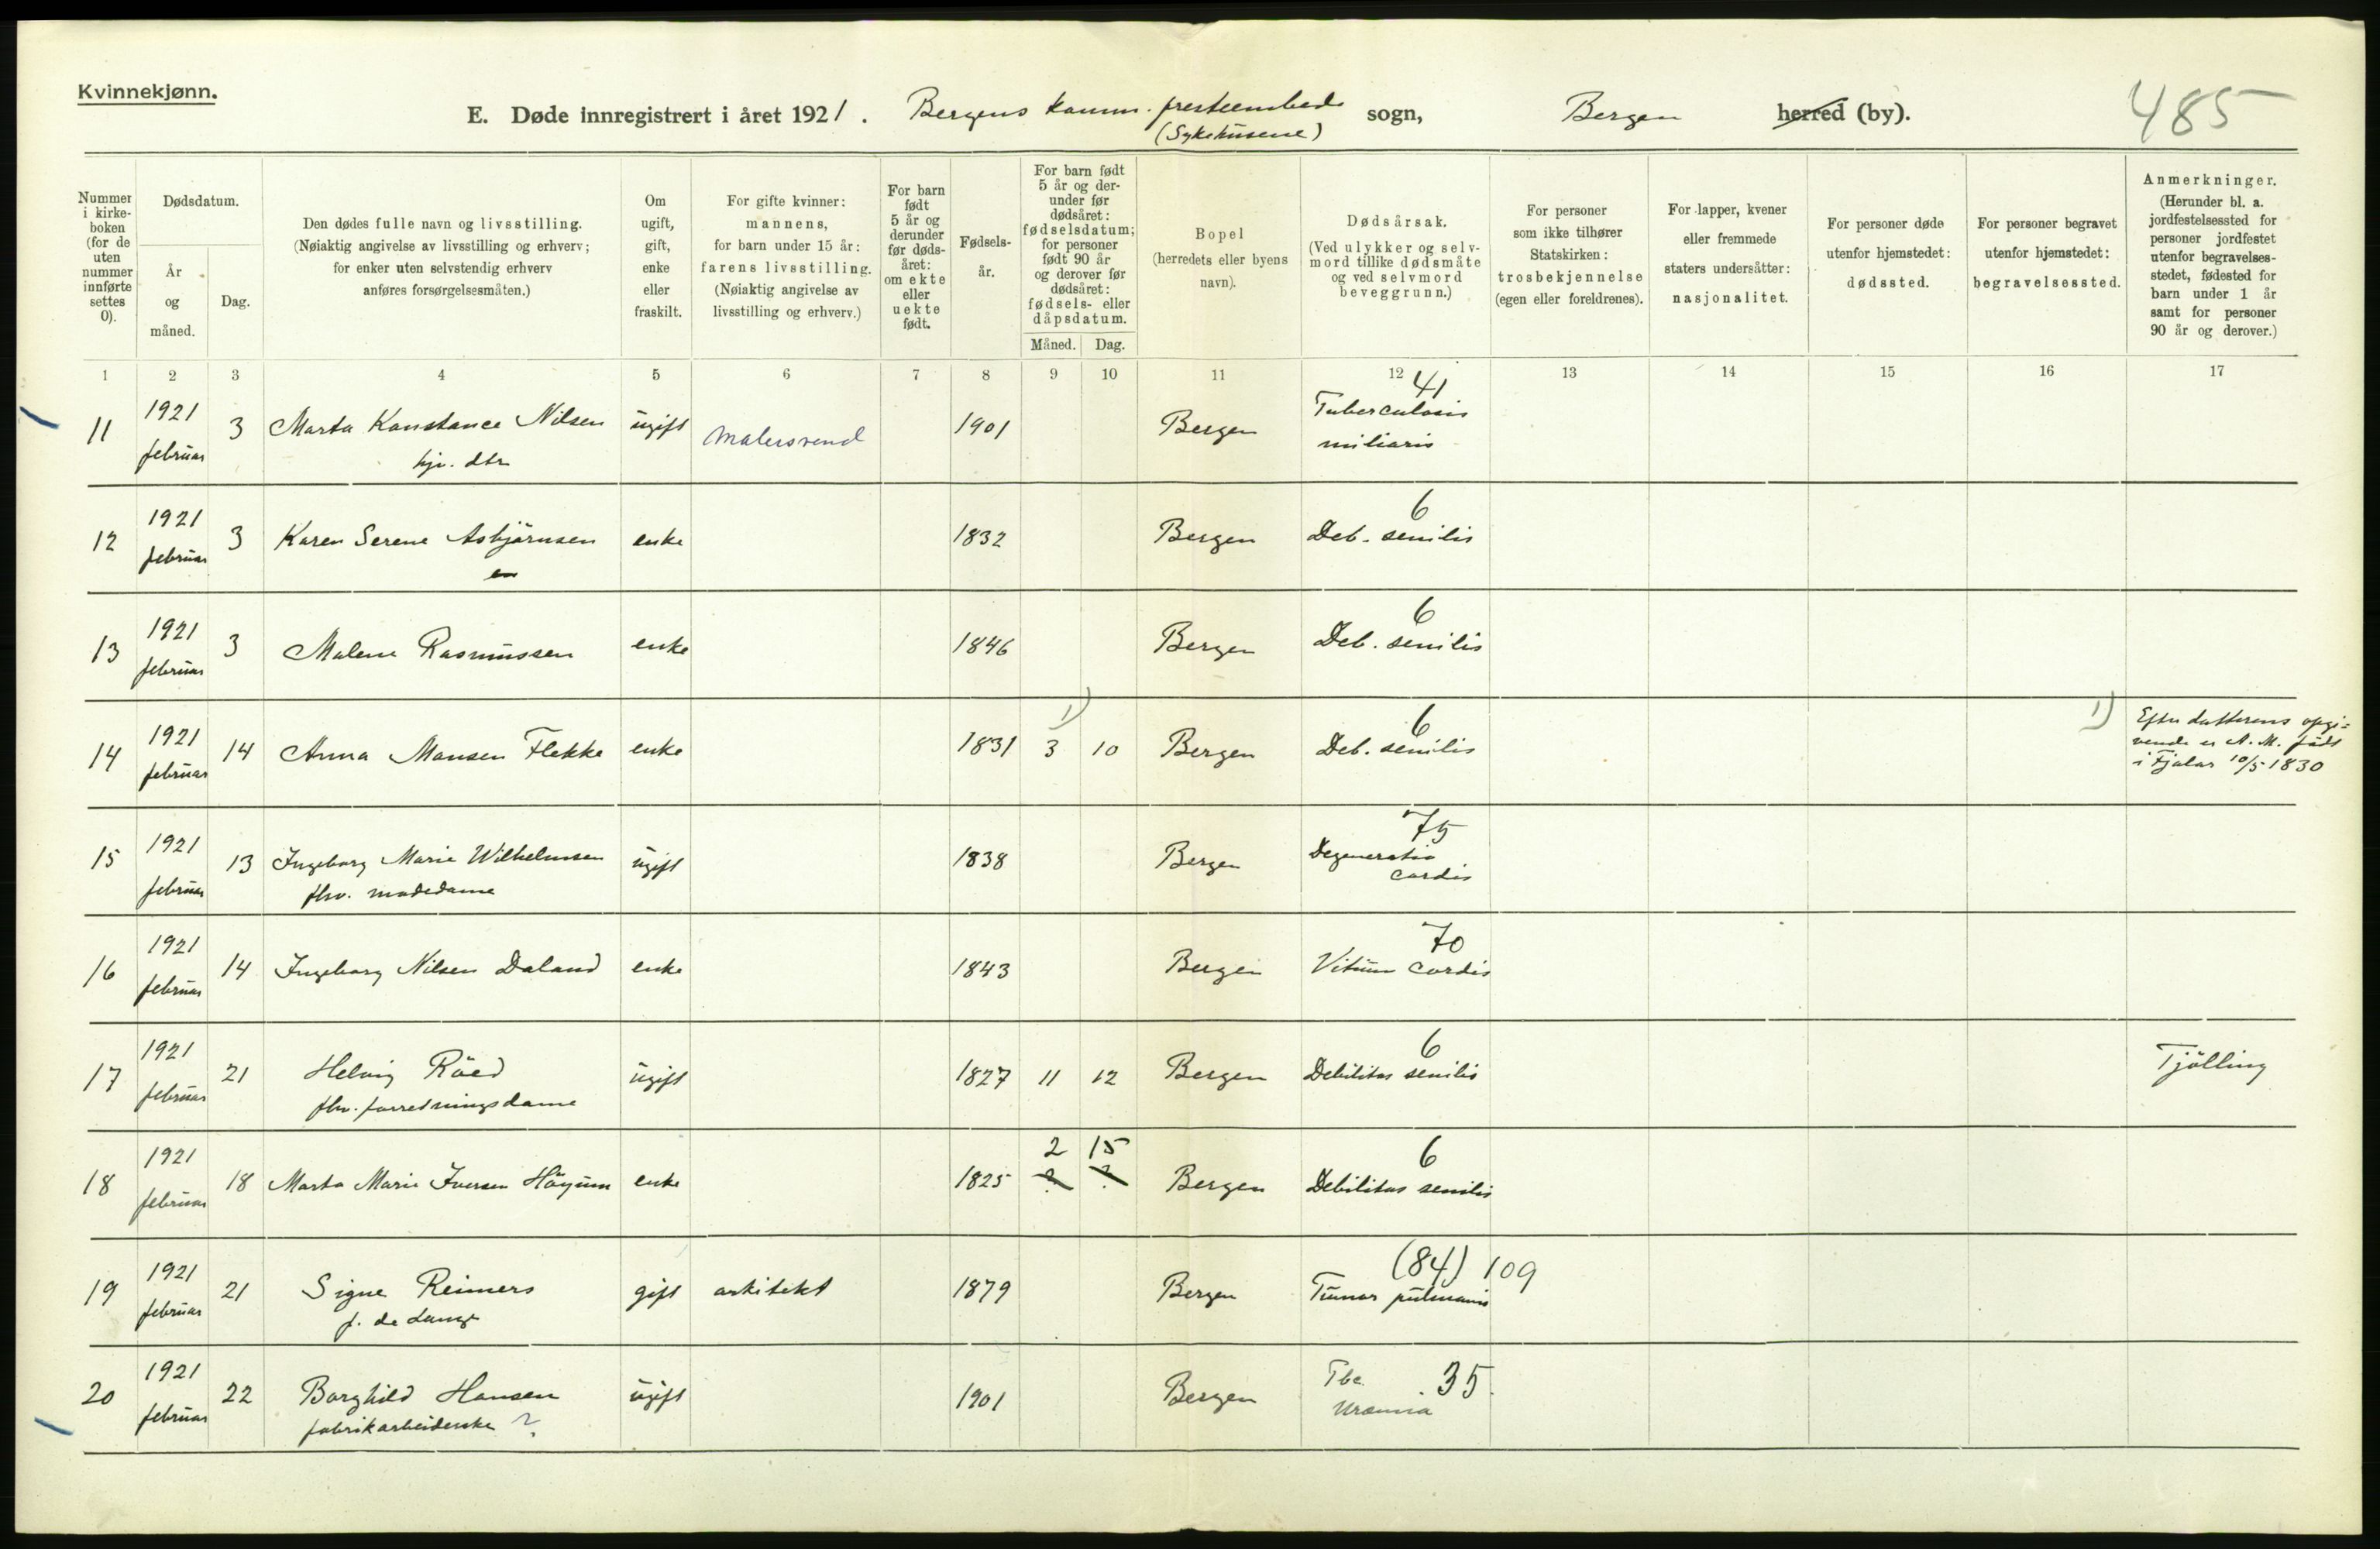 Kvinnekjønn.
E. Døde innregistrert i året 1921. Bergens komm. presteembede (Sykehusene) sogn, Bergen herred (by).
485
Nummer i kirkeboken (for de uten nummer innførte settes 0).
Dødsdatum.
År og måned.
Dag.
Den dødes fulle navn og livsstilling. (Nøiaktig angivelse av livsstilling og erhverv; for enker uten selvstendig erhverv anføres forsørgelsesmåten.)
Om ugift, gift, enke eller fraskilt.
For gifte kvinner: mannens, for barn under 15 år: farens livsstilling. (Nøiaktig angivelse av livsstilling og erhverv.)
For barn født 5 år og derunder før dødsåret: om ekte eller uekte født.
Fødselsår.
For barn født 5 år og derunder før dødsåret: fødselsdatum; for personer født 90 år og derover før dødsåret: fødsels- eller dåpsdatum.
Måned. Dag.
Bopel (herredets eller byens navn).
Dødsårsak. (Ved ulykker og selvmord tillike dødsmåte og ved selvmord beveggrunn.)
For personer som ikke tilhører Statskirken: trosbekjennelse (egen eller foreldrenes).
For lapper, kvener eller fremmede staters undersåtter: nasjonalitet.
For personer døde utenfor hjemstedet: dødssted.
For personer begravet utenfor hjemstedet: begravelsessted.
Anmerkninger. (Herunder bl. a. jordfestelsessted for personer jordfestet utenfor begravelsesstedet, fødested for barn under 1 år samt for personer 90 år og derover.)
1 2 3 4 5 6 7 8 9 10 11 12 13 14 15 16 17
11 1921 februar 3 Marta Konstance Nilsen hjv. dtr ugift Malersvend 1901 Bergen 41 Tuberculosis miliaris
12 1921 februar 3 Karen Serene Asbjörnsen en enke 1832 Bergen 6 Deb. senilis
13 1921 februar 3 Malene Rasmussen enke 1846 Bergen 6 Deb. senilis
14 1921 februar 14 Anna Monsen Flekke enke 1831 1) 3 10 Bergen 6 Deb. senilis 1) Efter datterens opgivende er A. M. født i Fjalar 10/5 1830
15 1921 februar 13 Ingeborg Marie Wilhelmsen fhv. modedame ugift 1838 Bergen 75 Degeneratio cordis
16 1921 februar 14 Ingeborg Nilsen Daland enke 1843 Bergen 70 Vitium cordis
17 1921 februar 21 Helvig Röed fhv. forretningsdame ugift 1827 11 12 Bergen 6 Debilitas senilis Tjölling
18 1921 februar 18 Marta Marie Iversen Höyum enke 1825 2 15 ? ? Bergen 6 Debilitas senilis
19 1921 februar 21 Signe Reimers f. de Lange gift arkitekt 1879 Bergen (84) 109 Tumor pulmonis
20 1921 februar 22 Borghild Hansen fabrikarbeiderske ? ugift 1901 Bergen Tbc. 35 Uræmia